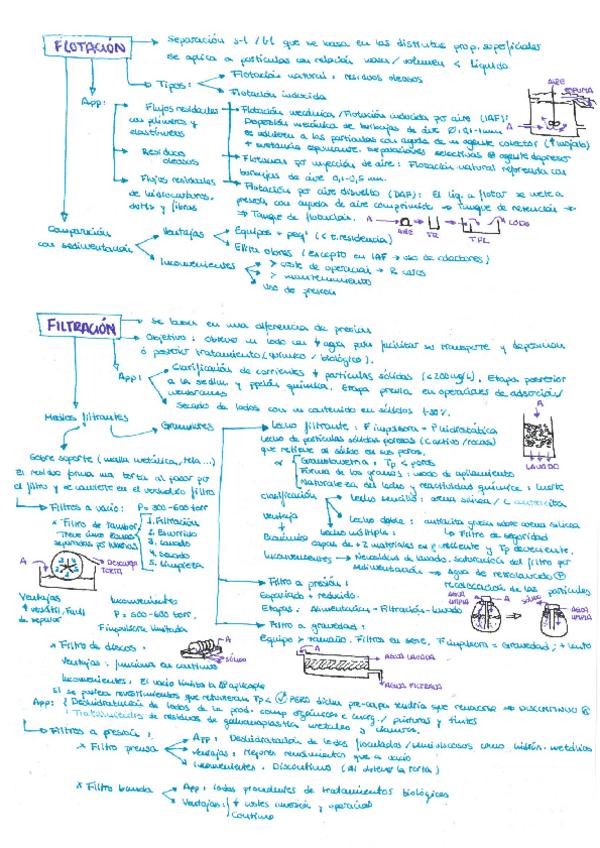 FLOTACIÓN
Separación s-l / l-l que se basa en las distintas prop. superficiales
se aplica a partículas con relación masa/volumen < líquido.
Tipos:
Flotación natural: residuos oleosos
Flotación inducida
App:
Flujos residuales
con polímeros y
elastómeros
Residuos
oleosos
Flujos residuales
de hidrocarburos,
y fibras
Flotación mecánica / Flotación inducida por aire (IAF):
Dispersión mecánica de burbujas de aire Ø 0,1-1mm
se adhieren a las partículas con ayuda de un agente colector (↑mojab)
+ sustancia espumante. Separaciones selectivas agente depresor
Flotación por inyección de aire: Flotación natural reforzada con
burbujas de aire 0,1-0,5 mm.
Flotación por aire disuelto (DAF): El líq. a flotar se mete a
presión con ayuda de aire comprimido → Tanque de retención →
→ Tanque de flotación.
AIRE
ESPUMA
A
A
AIRE
TR
TFL
LODO
Comparación
con sedimentación
Ventajas
Equipos + peqs (< t.residencia)
Elim olores (excepto en IAF → uso de colectores)
Inconvenientes
> coste de operación → R caros
> mantenimiento
Uso de presión
FILTRACIÓN
Se basan en una diferencia de presión
Objetivo: obtener un lodo con ↓ agua para facilitar su transporte y deposición
ó posterior tratamiento (químico / biológico).
App:
Clarificación de corrientes ↓ partículas sólidas (<200mg/L). Etapa posterior
a la sedim y pptión química. Etapa previa en operaciones de adsorción/
membranas
Secado de lodos con un contenido en sólidos
Medios filtrantes
Granulares
Sobre soporte (malla metálica, tela...)
El residuo forma una torta al pasar por
el filtro y se convierte en el verdadero filtro
Filtros a vacío: P = 300-600 torr
* Filtro de tambor
Tiene cinco zonas
separadas por
1. Filtración
2. Escurrido
3. Lavado
4. Secado
5. Limpieza
A
DESCARGA
TORTA
Ventajas
+ versátil, Fácil
de reparar
Inconvenientes
P = 500-600 torr.
F impulsora limitada
* Filtro de discos:
A
SÓLIDO
Ventajas: funciona en continuo
Inconvenientes. El vacío limita la aplicable
Si se ponen revestimientos que retuvieran Tp < PERO dicha pre-capa tendría que renovarse → DISCONTINUO
App: Deshidratación de lodos de la prod. comp orgánicos e inorg. / pinturas y tintes
Tratamientos de residuos de galvanoplastia metales y cianuros.
Filtros a presión:
* Filtro prensa
App: Deshidratación de lodos floculados / semiviscosos como hidróx. metálicos
Ventajas: Mejores rendimientos que a vacío
Inconvenientes. Discontinuo (Al obtener la torta)
* Filtro banda
App: lodos procedentes de tratamientos biológicos
Ventajas: ↓ costes inversión y operación
Continuo
Lecho filtrante: F impulsora = P hidrostática
Lecho de partículas sólidas porosas (carbón/rocas)
que retiene al sólido en sus poros.
Granulometría: Tp < poros
Forma de los granos: modo de apilamiento
Naturaleza del lecho y reactividad química: inerte
A
LAVADO
Clasificación
Lecho sencillo: arena sílica / antracita
Lecho doble: antracita gruesa sobre arena sílica
→ Filtro de seguridad
Lecho múltiple:
capas de + 2 materiales en ρ creciente y Tp decreciente,
Ventaja
Económico
Inconvenientes → Necesidad de lavado. saturación del filtro por
sedimentación → Agua de retrolavado
recolocación de las partículas
Filtro a presión:
Espaciado + reducido.
Etapas. Alimentación - Filtración - Lavado
A
AGUA
LIMPIA
SÓLIDO
AGUA
LIMPIA
Filtro a gravedad:
Equipo > tamaño. Filtros en serie. F impulsora = Gravedad; + lento
A
AGUA LAVADO
AGUA FILTRADA